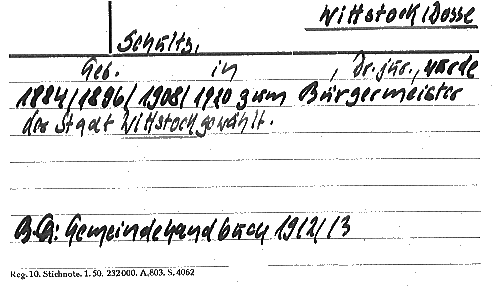 Wittstock/Dosse
Schultz,
Geb. in , Dr. jur., wurde
1884/1896/1908/1920 zum Bürgermeister
der Stadt Wittstock gewählt.
B.Q: Gemeindehandbuch 1912/13
Reg. 10. Stichnote. 1. 50. 232000. A.803. S. 4062